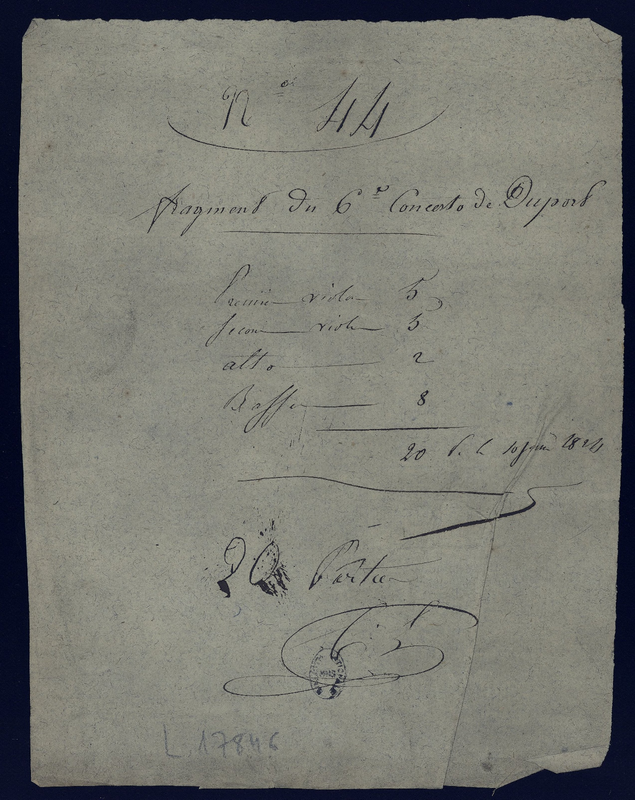 N° 44
fragment du 6e Concerto de Duport
Premier violon 5
second violon 5
alto 2
Basse 8
20 P. le 10 juin 1824
20 Parties
L.17846